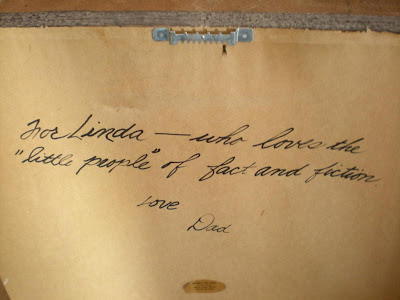 For Linda — who loves the
"little people" of fact and fiction
Love
Dad